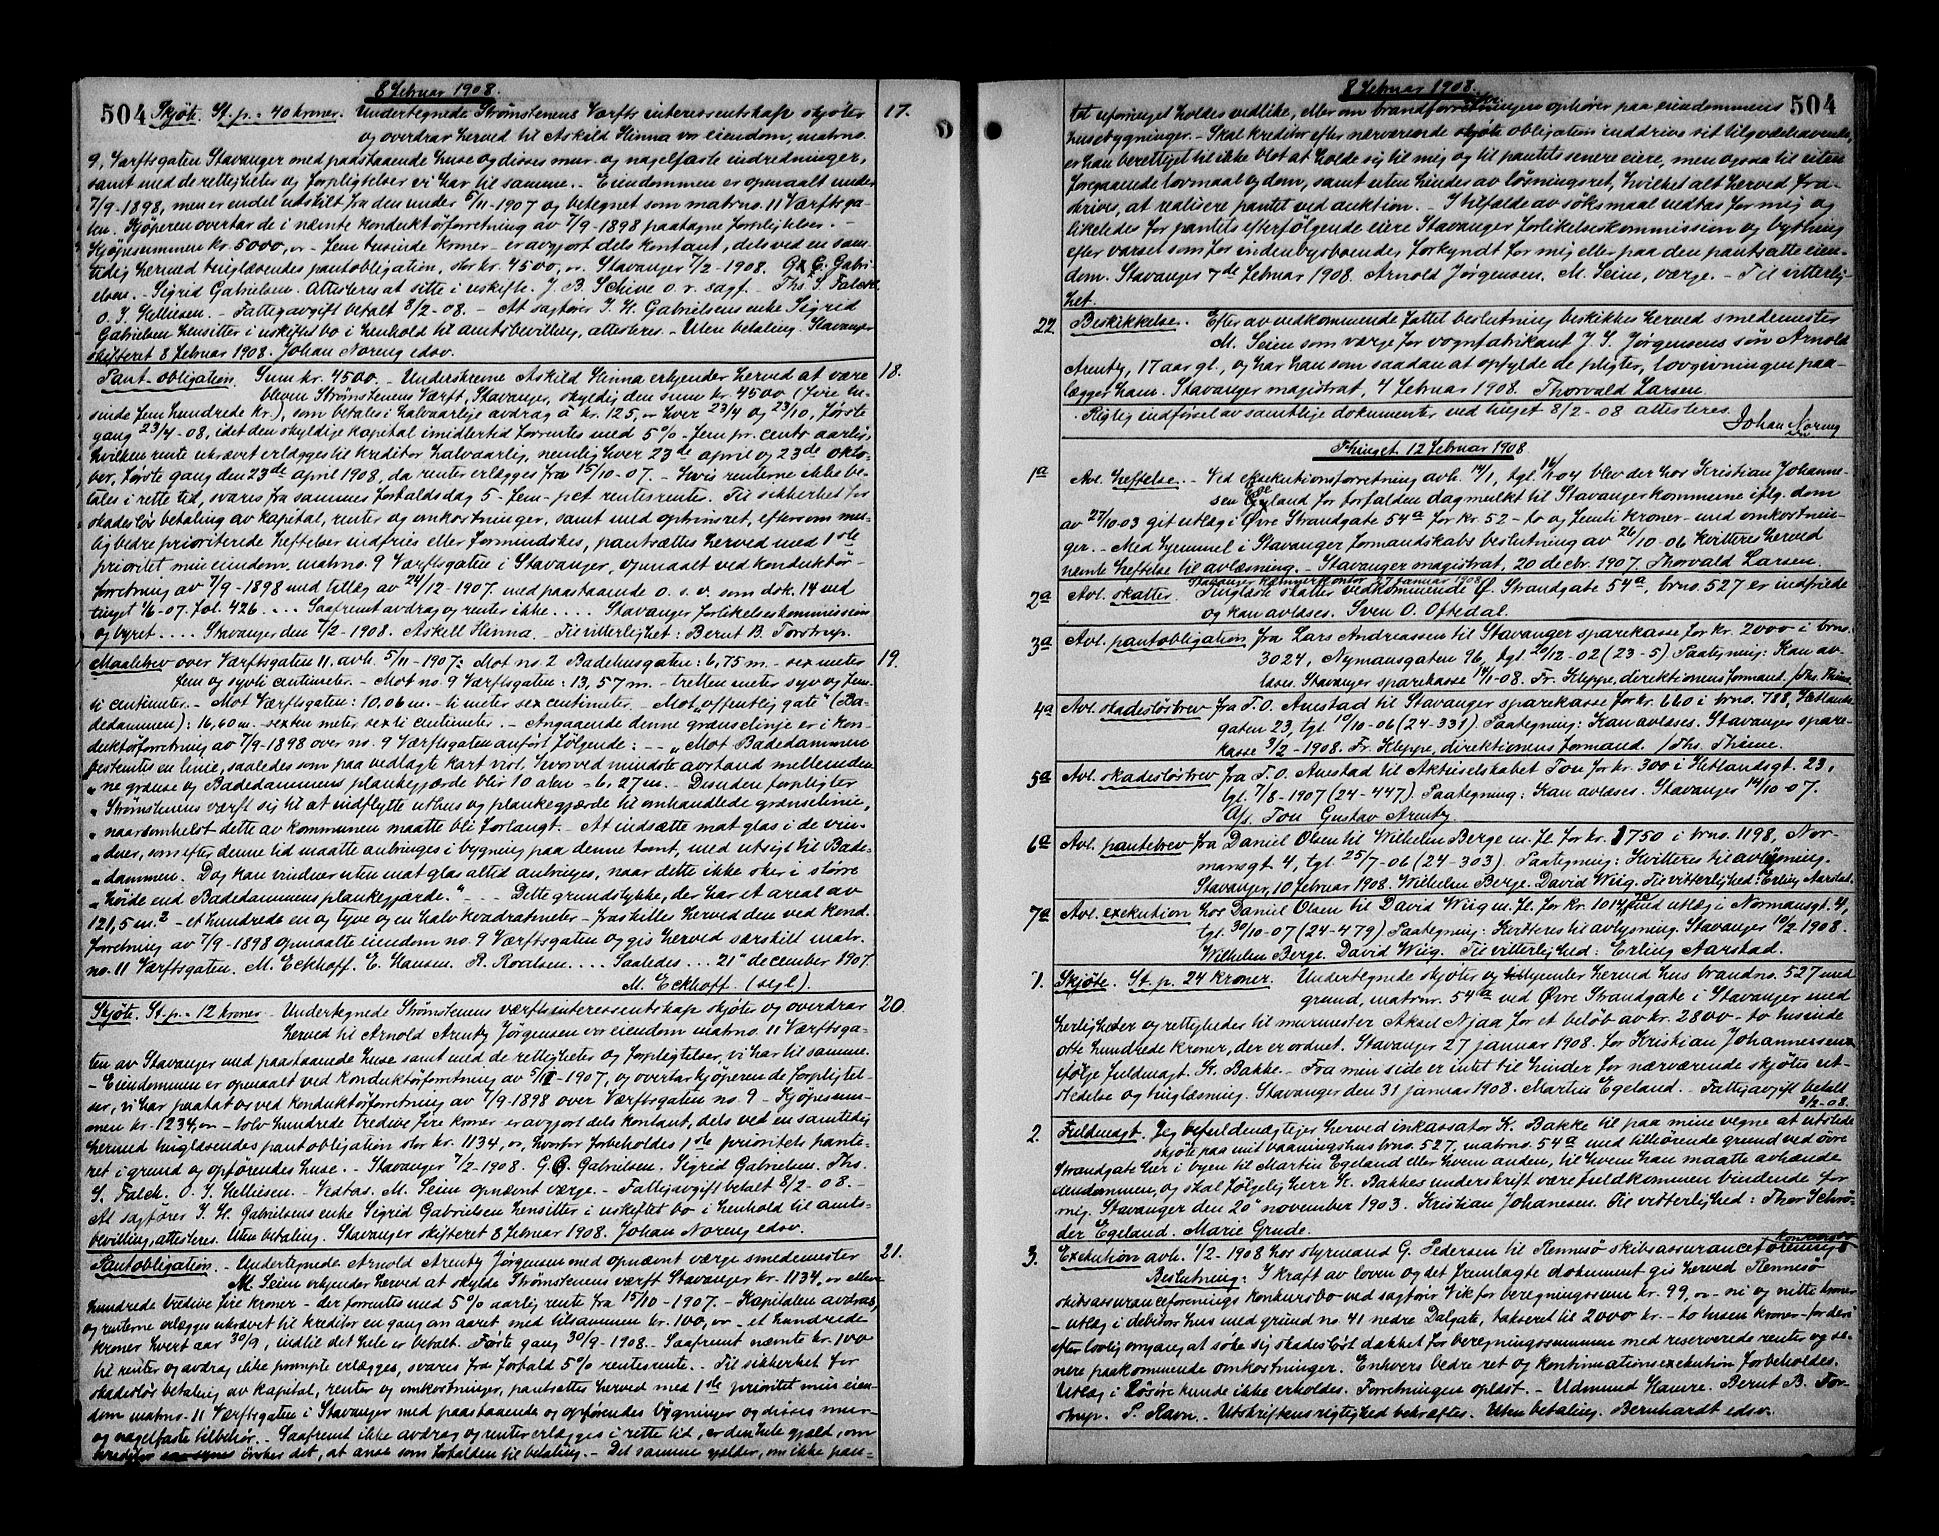 8 Februar 1908.
504 Skjøte. St. p. = 40 kroner. Undertegnede Strømstenens Værfts interessentskap skjøter 17.
og overdrar herved til Askild Hinna vor eiendom, matrno.
9, Værftsgaten Stavanger med paastaaende huse og disses mur- og nagelfaste indredninger,
samt med de rettigheter og forpligtelser vi har til samme. - Eiendommen er opmaalt under
7/9-1898, men er en del utskilt fra den under 5/11-1907 og betegnet som matrno. 11 Værftsga-
ten. Kjøperen overtar de i nævnte konduktørforretning av 7/9-1898 paatagne forpligtelser. -
Kjøpesummen kr. 5000,00 - fem tusinde kroner - er avgjort dels kontant, dels ved en sam-
tidig hermed tinglæsendes pantobligation, stor kr. 4500,00. Stavanger 7/2-1908. G. C. Gabri-
elsen. Sigrid Gabrielsen. Attesteres at sitte i uskifte. J. B. Schive o. r. sagf. - Ths. S. Falck.
O. J. Helliesen. - Fattigavgift betalt 8/2-08. - At sagfører J. H. Gabrielsens enke Sigrid
Gabrielsen hensitter i uskiftet bo i henhold til amtsbevilling, attesteres. - Uten betaling. Stavanger
skifteret 8 Februar 1908. Johan Noreng edsv.
Pant-obligation. Sum kr. 4500. - Underskrevne Askild Hinna erkjender herved at være 18.
bleven Strømstenens Værft, Stavanger, skyldig den sum kr. 4500 (fire tu-
sinde fem hundrede kr.), som betales i halvaarlige avdrag à kr. 125,00 hver 23/4 og 23/10, første
gang 23/4-08, idet den skyldige kapital imidlertid forrentes med 5% - fem pr. cents aarlig,
hvilken rente ukrævet erlægges til kreditor halvaarlig, nemlig hver 23de april og 23de okto-
ber, første gang den 23de april 1908, da renter erlægges fra 15/10-07. - Hvis renterne ikke be-
tales i rette tid, svares fra sammes forfaldsdag 5 - fem - pct rentesrente. Til sikkerhet for
skadesløs betaling av kapital, renter og omkostninger, samt med optrinsret, eftersom mu-
lig bedre prioriterede heftelser indfries eller formindskes, pantsættes herved med 1ste
prioritet min eiendom, matrno. 9 Værftsgaten i Stavanger, opmaalt ved konduktør-
forretning av 7/9-1898 med tillæg av 24/12-1907. med paastaaende o. s. v. som dok. 14 ved
tinget 1/6-07. fol. 426. ... Saafremt avdrag og renter ikke .... Stavanger forlikelseskommission
og byret .... Stavanger den 7/2-1908. Askell Hinna. - Til vitterlighet: Bernt B. Torstrup.
Maalebrev over Værftsgaten 11. avh. 5/11-1907: Mot no. 2 Badehusgaten: 6,75 m. - sex meter 19.
fem og sytti centimeter. - Mot no. 9 Værftsgaten: 13,57 m. - tretten meter syv og fem-
ti centimeter. - Mot Værftsgaten: 10,06 m. - ti meter sex centimeter. - Mot „offentlig gate“ (Ba-
dedammen): 16,60 m. sexten meter sexti centimeter. - Angaaende denne grænselinje er i kon-
duktørforretning av 7/9-1898 over no. 9 Værftsgaten anført følgende: - - „Mot Badedammen
bestemtes en linie, saaledes som paa vedlagte kart vist, hvorved mindste avstand mellem den-
„ne grænse og Badedammens plankegjærde blir 10 alen = 6,27 m. - Desuden forpligter
„Strømstenens værft sig til at indflytte uthus og plankegjærde til omhandlede grænselinie,
„naarsomhelst dette av kommunen maatte bli forlangt. - At indsætte mat glas i de vin-
„duer, som efter denne tid maatte anbringes i bygning paa denne tomt, med utsigt til Bade-
„dammen. Dog kan vinduer uten mat glas altid anbringes, naar dette ikke sker i større
„høide end Badedammens plankegjærde.“ - - - Dette grundstykke, der har et areal av
121,5 m.² - et hundrede en og tyve og en halv kvadratmeter - fraskilles herved den ved kond.
forretning av 7/9-1898 opmaalte eiendom no. 9 Værftsgaten og gis herved særskilt matr.
no. 11 Værftsgaten. M. Eckhoff. E. Hansen. R. Roalsen. ... Saaledes ... 21' december 1907.
M. Eckhoff. (segl).
Skjøte. St. p. = 12 kroner. Undertegnede Strømstenens værftsinteressentskap skjøter og overdrar 20.
herved til Arnold Arentz Jørgensen vor eiendom matrno. 11 Værftsga-
ten av Stavanger med paastaaende huse samt med de rettigheter og forpligtelser, vi har til samme.
- Eiendommen er opmaalt ved konduktørforretning av 5/11-1907, og overtar kjøperen de forpligtel-
ser, vi har paatat os ved konduktørforretning av 7/9-1898 over Værftsgaten no. 9 - Kjøpesum-
men kr. 1234,00 - tolv hundrede tredive fire kroner - er avgjort dels kontant, dels ved en samtidig
hermed tinglæsendes pantobligation stor kr. 1134,00, hvorfor forbeholdes 1ste prioritets pante-
ret i grund og opførendes huse. - Stavanger 7/2-1908. G. C. Gabrielsen. Sigrid Gabrielsen. Ths.
S. Falck. O. J. Helliesen. - Vedtas. M. Seim opnævnt værge. - Fattigavgift betalt 8/2-08. -
At sagfører J. H. Gabrielsens enke Sigrid Gabrielsen hensitter i uskiftet bo i henhold til amts-
bevilling, attesteres. Uten betaling. Stavanger skifteret 8 Februar 1908. Johan Noreng edsv.
Pantobligation. - Undertegnede Arnold Arentz Jørgensen med opnævnt værge smedemester 21.
M. Seim erkjender herved at skylde Strømstenens værft Stavanger kr. 1134,00 elleve
hundrede tredive fire kroner - der forrentes med 5% aarlig rente fra 15/10-1907. - Kapitalen avdras
og renterne erlægges ukrævet til kreditor en gang om aaret med tilsammen kr. 100,00 - et hundrede
kroner hvert aar 30/9, indtil det hele er betalt. Første gang 30/9-1908. Saafremt nævnte kr. 100
til renter og avdrag ikke prompte erlægges, svares fra forfald 5% rentesrente. - Til sikkerhet for
skadesløs betaling av kapital, renter og omkostninger, pantsættes herved med 1ste prioritet min eien-
dom matrno. 11 Værftsgaten i Stavanger med paastaaende og opførendes bygninger og disses mur-
og nagelfaste tilbehør. - Saafremt ikke avdrag og renter erlægges i rette tid, er den hele gjæld, om
kreditor ønsker det, at anse som forfalden til betaling. - Det samme gjelder, om ikke pan-
8 Februar 1908.
504
tet uforringet holdes vedlike, eller om brandforsikringen ophører paa eiendommens
husebygninger. - Skal kreditor efter nærværende skjøte obligation inddrive sit tilgodehavende,
er han berettiget til ikke blot at holde sig til mig og til pantets senere eiere, men ogsaa til uten
foregaaende lovmaal og dom, samt uten hindes av løsningsret, hvilket alt herved fra-
skrives, at realisere pantet ved auktion. - I tilfælde av søksmaal vedtas for mig og
likeledes for pantets efterfølgende eiere Stavanger forlikelseskommission og byting
efter varsel som for indenbysboendes, forkyndt for mig eller paa den pantsatte eien-
dom. Stavanger 7de Februar 1908. Arnold Jørgensen. M. Seim, værge. - Til vitterlig-
het.
22. Beskikkelse. Efter av vedkommende fattet beslutning beskikkes herved smedemester
M. Seim som værge for vognfabrikant J. S. Jørgensens søn Arnold
Arentz, 17 aar gl., og har han som saadan at opfylde de pligter, lovgivningen paa-
lægger ham. Stavanger magistrat, 4 Februar 1908. Thorvald Larsen.
Rigtig indførsel av samtlige dokumenter ved tinget 8/2-08 attesteres.
Johan Noreng
edsv
Thinget 12 Februar 1908
1a Avl. heftelse. - Ved exekutionsforretning avh. 14/1, tgl. 16/1-04 blev der hos Kristian Johanne-
sen Egeland for forfalden dagmulkt til Stavanger kommune iflg. dom
av 27/10-03 git utlæg i Øvre Strandgate 54a for kr. 52 - to og femti kroner - med omkostnin-
ger. - Med hjemmel i Stavanger formandskabs beslutning av 26/10-06 kvitteres herved
nævnte heftelse til avlæsning. - Stavanger magistrat, 20 decbr. 1907. Thorvald Larsen.
Stavanger kæmnerkontor 27 januar 1908
2a Avl. skatter. Tinglæste skatter vedkommende Ø. Strandgate 54a, brno. 527 er indfriede
og kan avlæses. Sven O. Oftedal.
3a Avl. pantobligation fra Lars Andreassen til Stavanger sparekasse for kr. 2000 i brno.
3024, Nymansgaten 96, tgl. 20/12-02 (23-5) Paategning: Kan av-
læses. Stavanger sparekasse 14/1-08. Fr. Kleppe, direktionens formand. /Ths. Thime.
4a Avl. skadesløsbrev fra T. O. Auestad til Stavanger sparekasse for kr. 660 i brno. 788, Hetlands-
gaten 23, tgl. 10/10-06 (24-331) Paategning: Kan avlæses. Stavanger spare-
kasse 9/2-1908. Fr. Kleppe, direktionens formand. /Ths. Thime.
5a Avl. skadesløsbrev fra T. O. Auestad til Aktieselskabet Tou for kr. 300 i Hetlandsgt. 23,
tgl. 7/8-1907 (24-447) Paategning: Kan avlæses. Stavanger 14/10-07.
A/s. Tou Gustav Arentz.
6a Avl. pantebrev fra Daniel Olsen til Wilhelm Berge m. fl. for kr. 3750 i brno. 1198, Nor-
mansgt 4, tgl. 25/7-06 (24-303). Paategning: Kvitteres til avlysning.
Stavanger, 10 februar 1908. Wilhelm Berge. David Wiig. Til vitterlighed: Erling Aarstad.
7a Avl. exekution hos Daniel Olsen til David Wiig m. fl. for kr. 1014, med utlæg i Normansgt. 4,
tgl. 30/10-07 (24-479) Paategning: Kvitteres til avlysning. Stavanger 10/2-1908.
Wilhelm Berge. David Wiig. Til vitterlighed: Erling Aarstad.
1. Skjøte. St. p. 24 kroner. Undertegnede skjøter og hjemler herved hus brandno. 527 med
grund, matrnr. 54a ved Øvre Strandgate i Stavanger med
herligheder og rettigheder til murmester Aksel Njaa for et beløb av kr. 2800 - to tusinde
otte hundrede kroner, der er ordnet. Stavanger 27 januar 1908. for Kristian Johannessen
ifølge fuldmagt. K. Bakke. - Fra men side er intet til hinder for nærværende skjøtes ut-
stedelse og tinglæsning. Stavanger den 31 januar 1908. Martin Egeland. Fattigavgift betalt
8/2-08.
2. Fuldmagt. Jeg befuldmægtiger herved inkassator K. Bakke til paa mine vegne at utstede
skjøte paa mit vaaningshus brno. 527, matrno. 54a med tilhørende grund ved øvre
Strandgate her i byen til Martin Egeland eller hvem anden, til hvem han maatte avhænde
eiendommen, og skal følgelig herr K. Bakkes underskrift være fuldkommen bindende for
mig. Stavanger den 20' november 1903. Kristian Johanesen. Til vitterlighed: Thor Schrø-
der Egeland. Marie Grude.
konkursbo
3. Exekution avh. 1/2-1908 hos styrmand G. Pedersen til Rennesø skibsassuranceforenings
Beslutning: I kraft av loven og det fremlagte dokument gis herved Rennesø
skibsassuranceforenings konkursbo ved sagfører Vik for beregningssum kr. 99,00 - ni og nitte kroner
- utlæg i debitors hus med grund no. 41 nedre Dalgate, takseret til 2000 kr. - to tusen kroner - for deri
efter lovlig omgang at søke sig skadesløst dækket for beregningssummen med reserverede renter og se-
nere paakommende omkostninger. Enhvers bedre ret og kontinuationsexekution forbeholdes.
Utlæg i løsøre kunde ikke erholdes. Forretningen opløst. - Udmund Hamre. Bernt B. Tor-
strup. P. Ravn. - Utskriftens rigtighed bekræftes. Uten betaling. Bernhardt edsv.